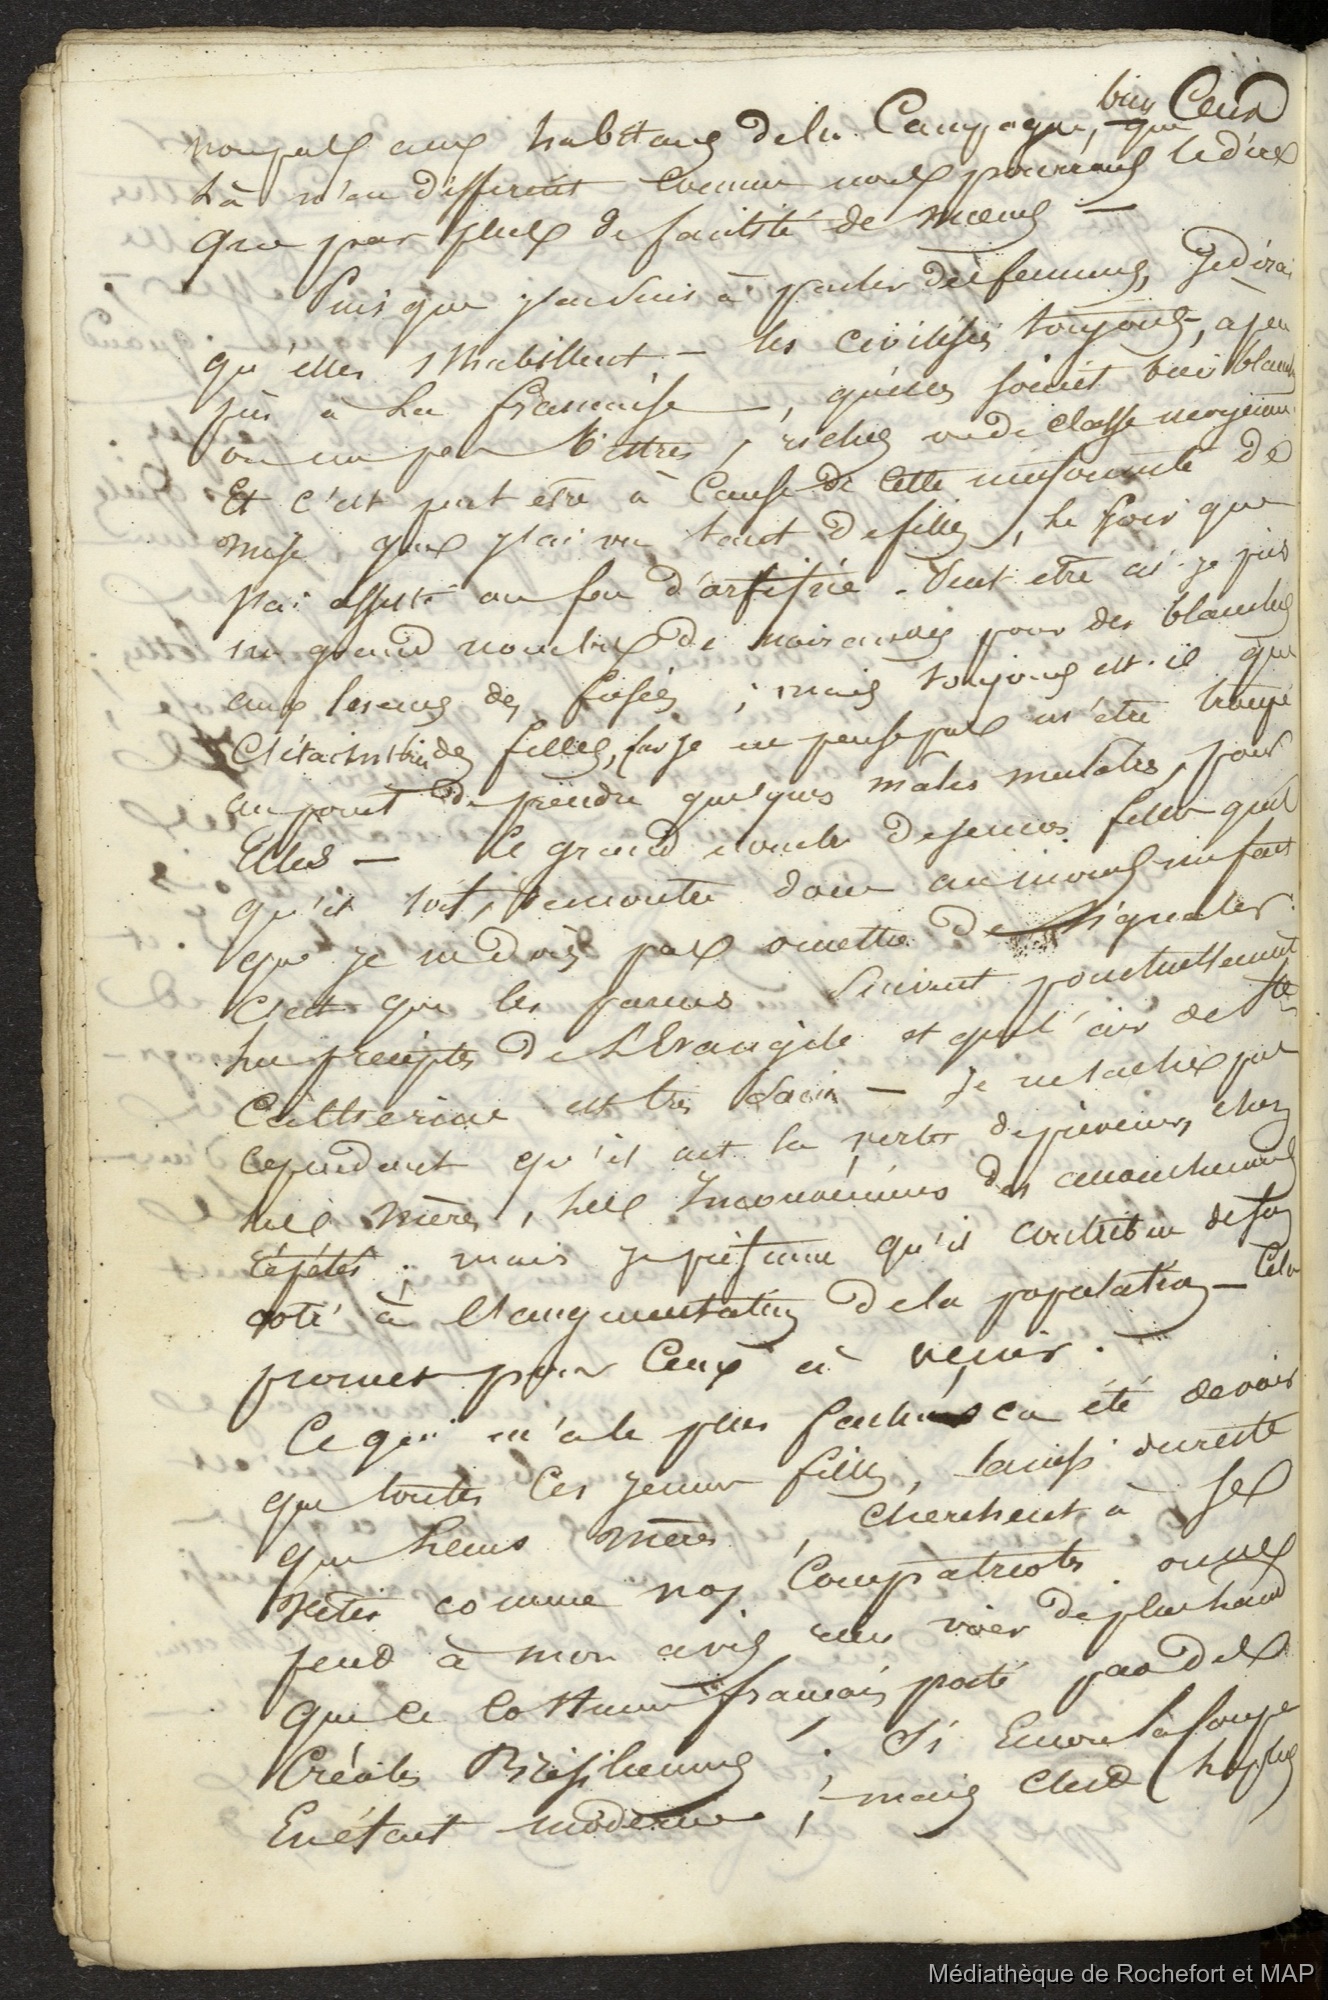 non pas aux habitans de la Campagne, bien que Ceux
là n'en différent comme nous pourrions le dire
que par plus de facilité de mœurs —
Puis que j'en suis à parler des femmes, je dirai
qu'elles s'habillent — les civilisées toujours, a peu
près à la française —, qu'elles soient bien blanches
ou un peu , riches ou de classe moyenne
Et c'est peut etre à Cause de Cette de
mise que j'ai vu tant de filles, le soir que
j'ai assisté au feu d'artifice. Peut etre ai-je pris
un grand nombre de pour des blanches
aux lueurs des fusées ; mais toujours est-il que
c'était bien des filles, car je ne pense pas m'être trompé
au point de prendre quelques mâles mulâtres, pour
Elles — Ce grand nombre de jeunes filles quel
qu'il soit, démontre donc au moins un fait
que je ne dois pas omettre de signaler.
C'est que les femmes suivent ponctuellement
les préceptes de L'Evangile et que l'air de Ste
Catherine est très sain — Je ne sache pas
cependant qu'il ait la vertu de prévenir, chez
les mères, les Inconvéniens des accouchemens
répétés ; mais je présume qu'il contribue de son
coté à l'augmentation de la population — Cela
promet pour Ceux à venir.
Ce qui m'a le plus faché ça été de voir
que toutes Ces jeunes filles, aussi du reste
que leurs mères, cherchent à se
vêtir comme nos Compatriotes.
à mon avis, rien voir de plus
que le Costume français porté par des
Créoles Brésiliennes. Si Encore la coupe
En était moderne ; mais chez les plus
Médiathèque de Rochefort et MAP